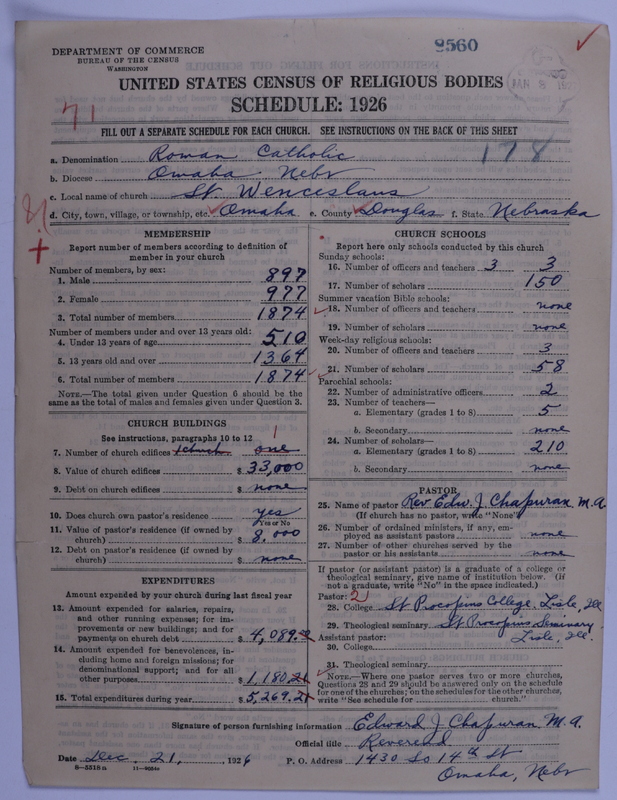 DEPARTMENT OF COMMERCE
BUREAU OF THE CENSUS
WASHINGTON
9560
JAN 8
UNITED STATES CENSUS OF RELIGIOUS BODIES
SCHEDULE: 1926
71
FILL OUT A SEPARATE SCHEDULE FOR EACH CHURCH. SEE INSTRUCTIONS ON THE BACK OF THIS SHEET
178
a. Denomination Roman Catholic
b. Diocese Omaha Nebr
c. Local name of church St Wenceslaus
d. City, town, village, or township, etc. Omaha e. County Douglas f. State Nebraska
MEMBERSHIP
Report number of members according to definition of
member in your church
Number of members, by sex:
1. Male 897
2. Female 977
3. Total number of members 1874
Number of members under and over 13 years old:
4. Under 13 years of age 510
5. 13 years old and over 1364
6. Total number of members 1874
NOTE.—The total given under Question 6 should be the
same as the total of males and females given under Question 3.
CHURCH BUILDINGS
See instructions, paragraphs 10 to 12
1
7. Number of church edifices 1 church one
8. Value of church edifices $ 33,000
9. Debt on church edifices $ none
10. Does church own pastor's residence yes
Yes or No
11. Value of pastor's residence (if owned by
church) $ 8,000
12. Debt on pastor's residence (if owned by
church) $ none
EXPENDITURES
Amount expended by your church during last fiscal year
13. Amount expended for salaries, repairs,
and other running expenses; for im-
provements or new buildings; and for
payments on church debt $ 4,089.
14. Amount expended for benevolences, in-
cluding home and foreign missions; for
denominational support; and for all
other purposes $ 1,180.21
15. Total expenditures during year $ 5,269.21
CHURCH SCHOOLS
Report here only schools conducted by this church
Sunday schools:
16. Number of officers and teachers 3 3
17. Number of scholars 150
Summer vacation Bible schools:
18. Number of officers and teachers none
19. Number of scholars none
Week-day religious schools:
20. Number of officers and teachers 3
21. Number of scholars 58
Parochial schools:
22. Number of administrative officers 2
23. Number of teachers—
a. Elementary (grades 1 to 8) 5
b. Secondary none
24. Number of scholars—
a. Elementary (grades 1 to 8) 210
b. Secondary none
PASTOR
25. Name of pastor Rev Edw. J. Chapuran M.A.
(If church has no pastor, write "None")
26. Number of ordained ministers, if any, em-
ployed as assistant pastors none
27. Number of other churches served by the
pastor or his assistants none
If pastor (or assistant pastor) is a graduate of a college or
theological seminary, give name of institution below. (If
not a graduate, write "No" in the space indicated.)
Pastor: 2
28. College St Procopius College, Lisle, Ill.
29. Theological seminary St Procopius Seminary
Assistant pastor: Lisle, Ill.
30. College
31. Theological seminary
NOTE.—Where one pastor serves two or more churches,
Questions 28 and 29 should be answered only on the schedule
for one of the churches; on the schedules for the other churches,
write "See schedule for church."
Signature of person furnishing information Edward J Chapuran M.A.
Official title Reverend
Date Dec. 21, 1926 P. O. Address 1430 So 14th St
8—5318a Omaha, Nebr